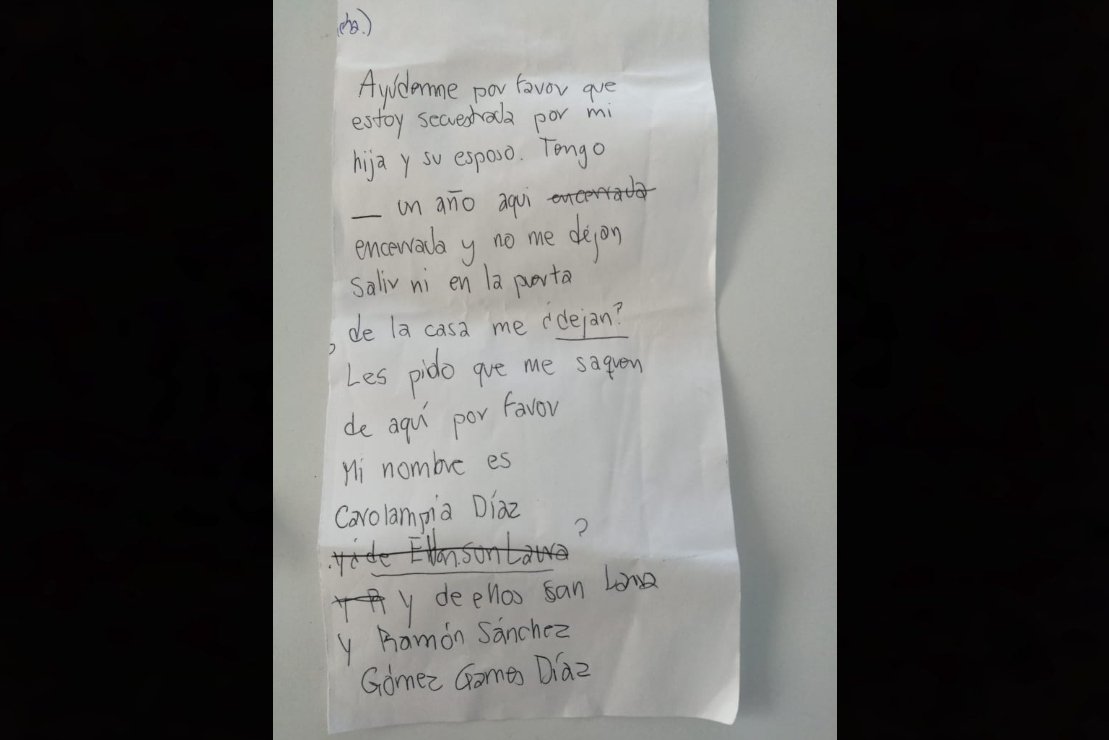 Ayúdenme por favor que
estoy secuestrada por mi
hija y su esposo. Tengo
_ un año aqui encerrada
encerrada y no me dejan
salir ni en la puerta
de la casa me ¿dejan?
Les pido que me saquen
de aquí por favor
Mi nombre es
Carolampia Díaz
?
Y de ellos son
y Ramón Sánchez
Gómez Games Díaz